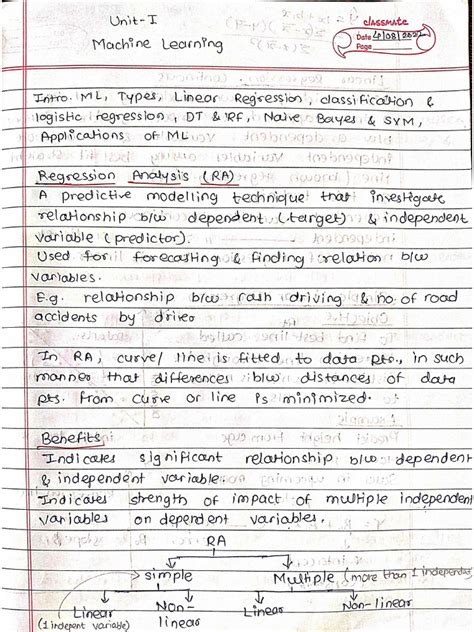 Unit-I
Machine Learning
classmate
Date 4/08/202
Page
Intro. ML, Types, Linear Regression, classification &
logistic regression, DT & RF, Naive Bayes & SVM,
Applications of ML
Regression Analysis (RA)
A predictive modelling technique that investigate
relationship b/w dependent (target) & independent
variable (predictor).
Used for forecasting & finding relation b/w
variables.
E.g. relationship b/w rash driving & no. of road
accidents by driver
In RA, curve/ line is fitted to data pts., in such
manner that differences b/w distances of data
pts. from curve or line is minimized.
Benefits
Indicates significant relationship b/w dependent
& independent variable.
Indicates strength of impact of multiple independent
variables on dependent variables.
RA
simple Multiple (more than 1 independent
Linear Non-linear Linear Non-linear
(1 indepent variable)